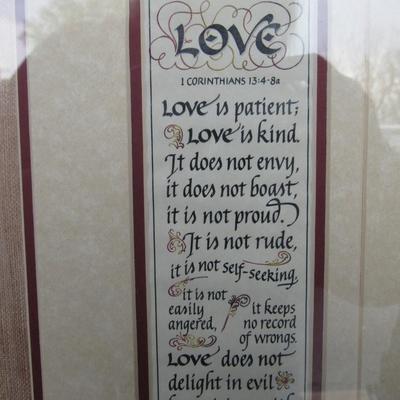 LOVE
1 CORINTHIANS 13:4-8a
LOVE is patient;
LOVE is kind.
It does not envy,
it does not boast,
it is not proud.
It is not rude,
it is not self-seeking,
it is not
easily
angered,
it keeps
no record
of wrongs.
LOVE does not
delight in evil